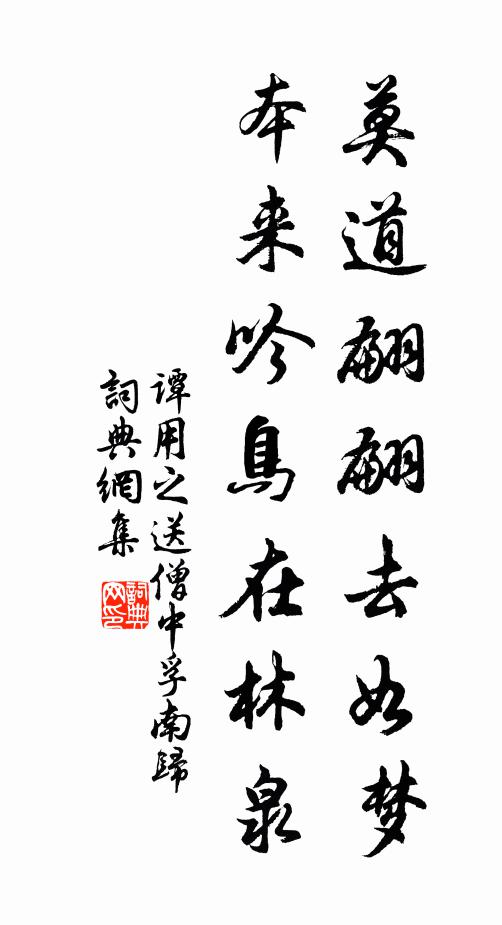 莫道翩翩去如梦
本来吟鳥在林泉
谭用之送僧中孚南歸
詞典網集
詞典网印